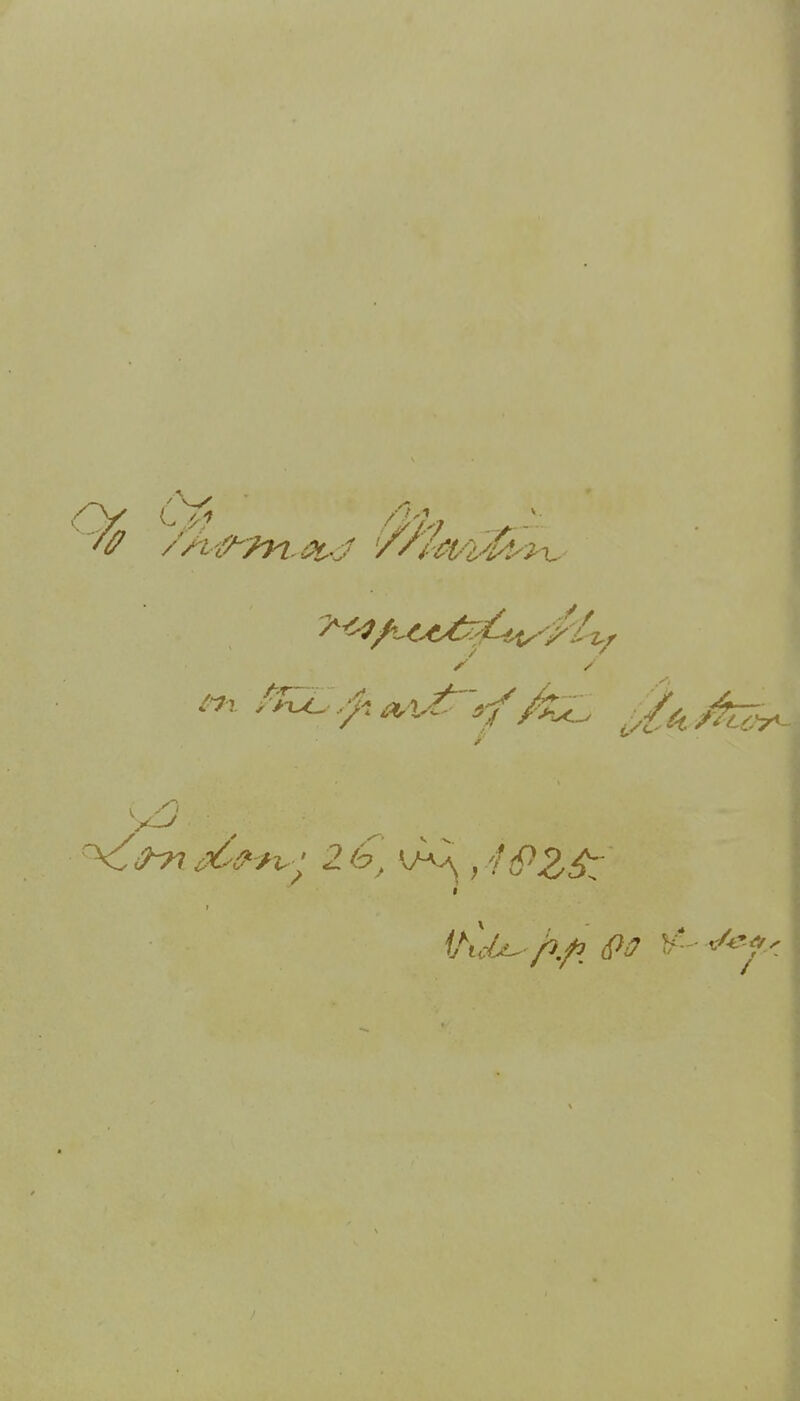 To Thomas Martin
respectfully
on the part of the Author
London; 26, 1825.
Vide pp. 80 & seq.